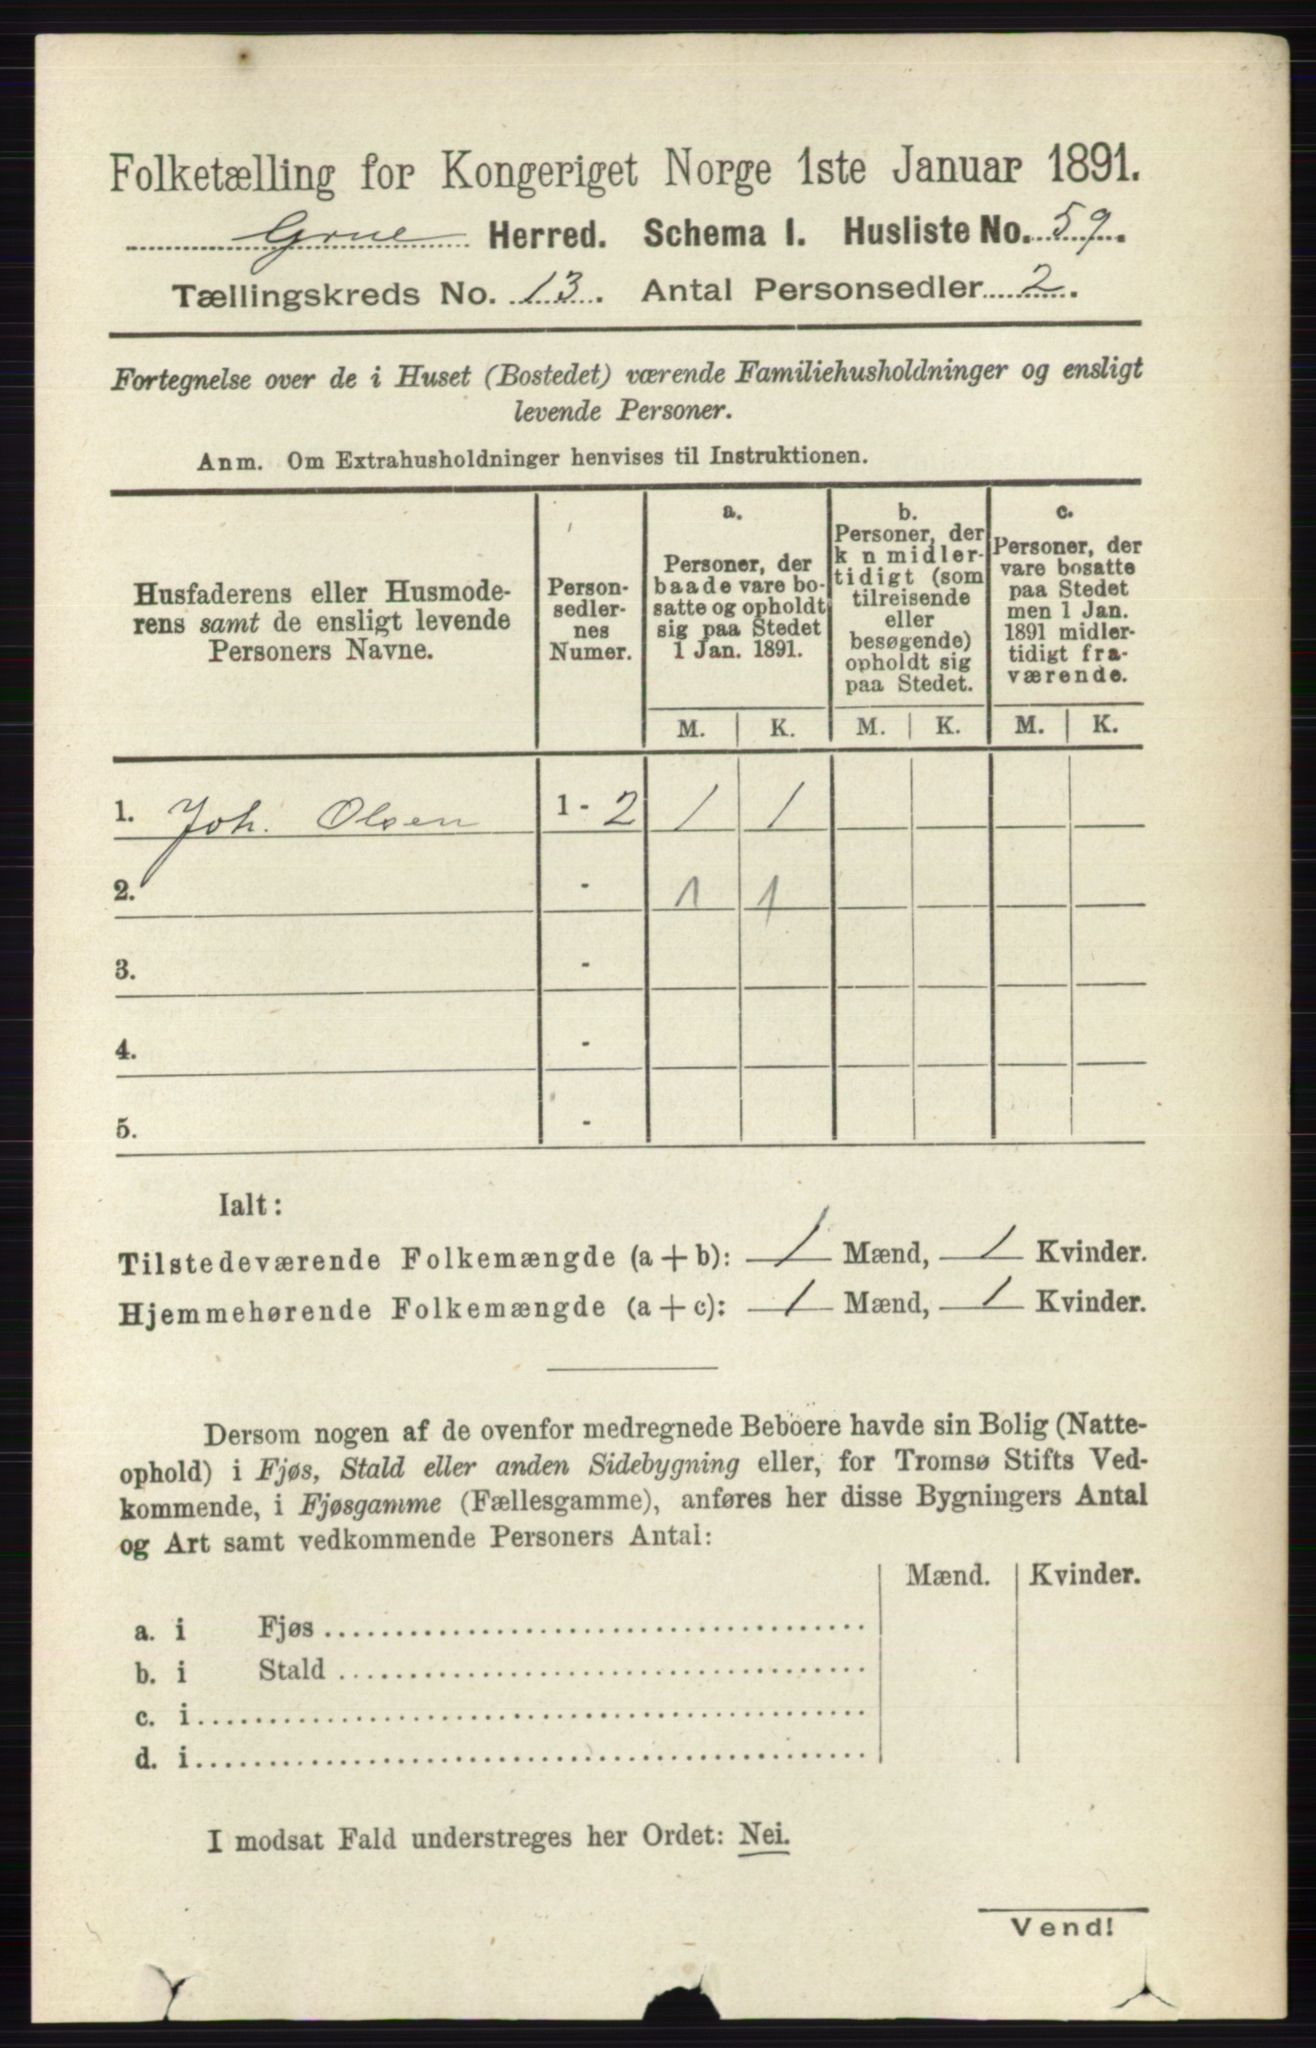 Folketælling for Kongeriget Norge 1ste Januar 1891.
Grue Herred. Schema I. Husliste No. 59.
Tællingskreds No. 13. Antal Personsedler 2.
Fortegnelse over de i Huset (Bostedet) værende Familiehusholdninger og ensligt
levende Personer.
Anm. Om Extrahusholdninger henvises til Instruktionen.
Husfaderens eller Husmode-
rens samt de ensligt levende
Personers Navne.
Person-
sedler-
nes
Numer.
a.
Personer, der
baade vare bo-
satte og opholdt
sig paa Stedet
1 Jan. 1891.
b.
Personer, der
k n midler-
tidigt (som
tilreisende
eller
besøgende)
opholdt sig
paa Stedet.
c.
Personer, der
vare bosatte
paa Stedet
men 1 Jan.
1891 midler-
tidigt fra-
værende.
M. K. M. K. M. K.
1. Joh. Olsen 1 - 2 1 1
2. - 1 1
3. -
4. -
5. -
Ialt:
Tilstedeværende Folkemængde (a + b): 1 Mænd, 1 Kvinder.
Hjemmehørende Folkemængde (a + c): 1 Mænd, 1 Kvinder.
Dersom nogen af de ovenfor medregnede Beboere havde sin Bolig (Natte-
ophold) i Fjøs, Stald eller anden Sidebygning eller, for Tromsø Stifts Ved-
kommende, i Fjøsgamme (Fællesgamme), anføres her disse Bygningers Antal
og Art samt vedkommende Personers Antal:
Mænd. Kvinder.
a. i Fjøs
b. i Stald
c. i
d. i
I modsat Fald understreges her Ordet: Nei.
Vend!